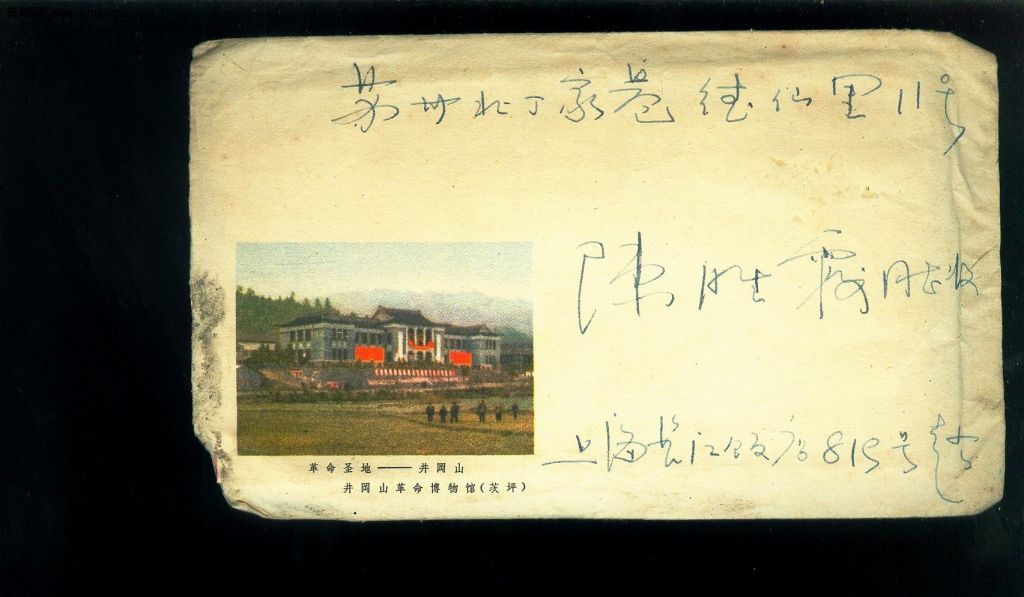 苏州北丁家巷德仙里11号
陈胜霞同志收
革命圣地——井岡山
井岡山革命博物馆(茨坪)
上海长江饭店819号赵